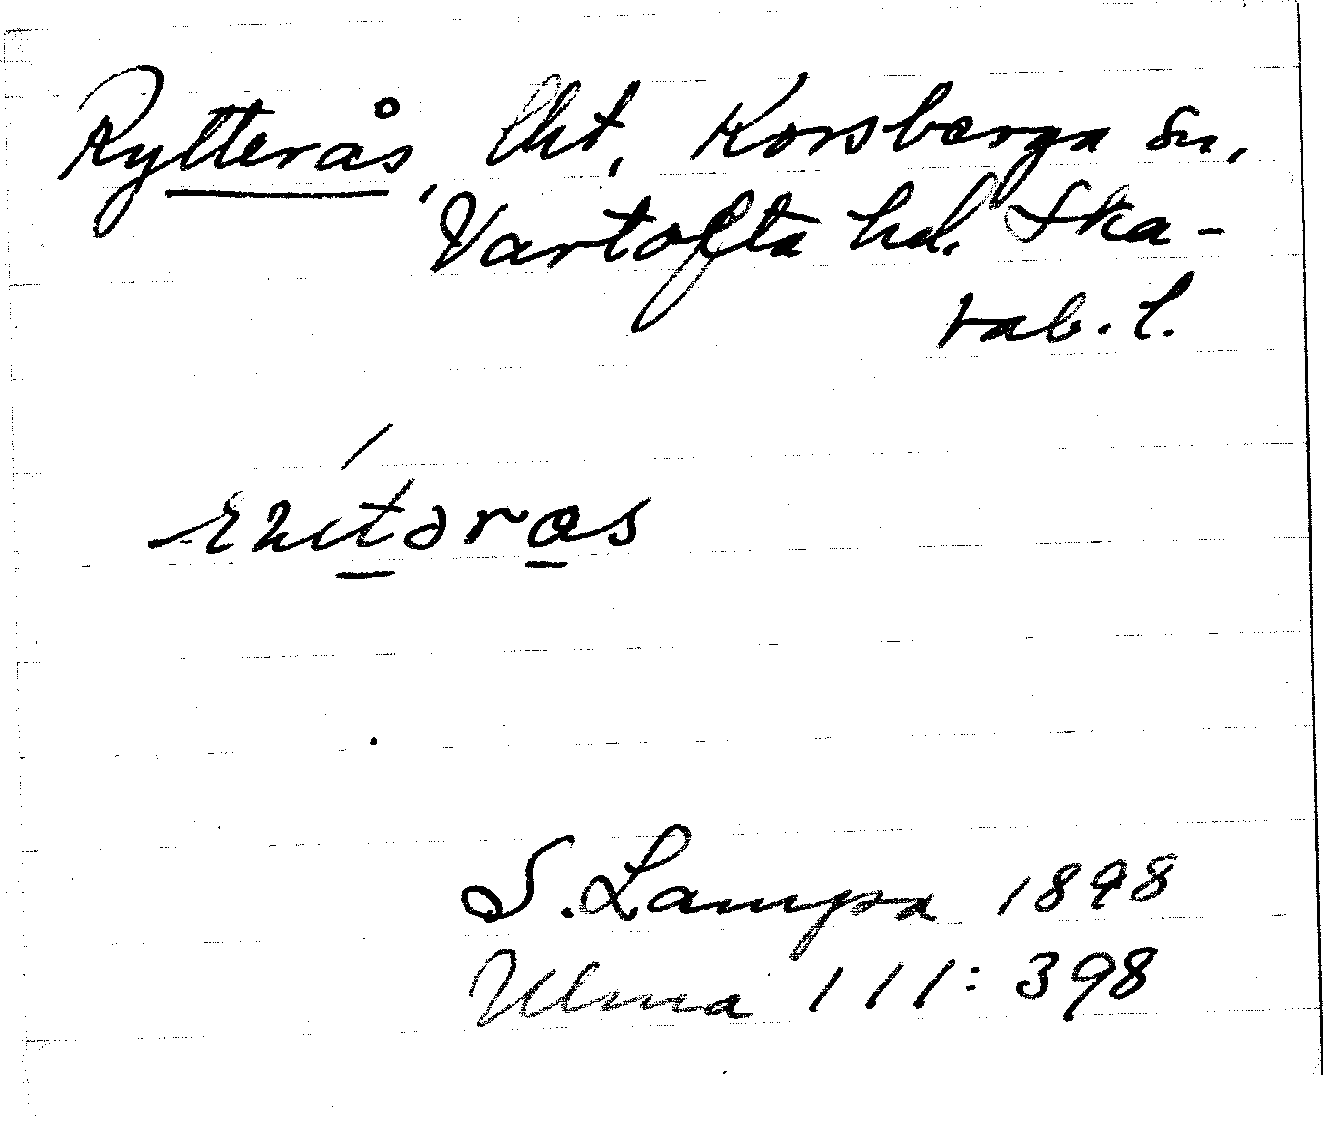 Rytterås, lht, Korsberga sn,
Vartofta hd. Ska-
rab. l.
S. Lampa 1898
Ulma 111:398